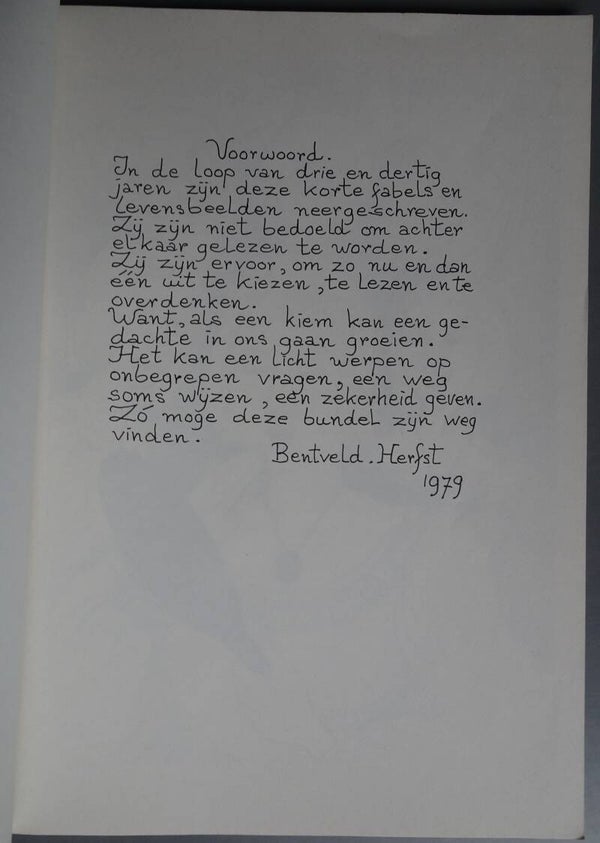 Voorwoord.
In de loop van drie en dertig
jaren zijn deze korte fabels en
levensbeelden neergeschreven.
Zij zijn niet bedoeld om achter
elkaar gelezen te worden.
Zij zijn ervoor, om zo nu en dan
één uit te kiezen, te lezen en te
overdenken.
Want, als een kiem kan een ge-
dachte in ons gaan groeien.
Het kan een licht werpen op
onbegrepen vragen, een weg
soms wijzen, een zekerheid geven.
Zó moge deze bundel zijn weg
vinden.
Bentveld. Herfst
1979